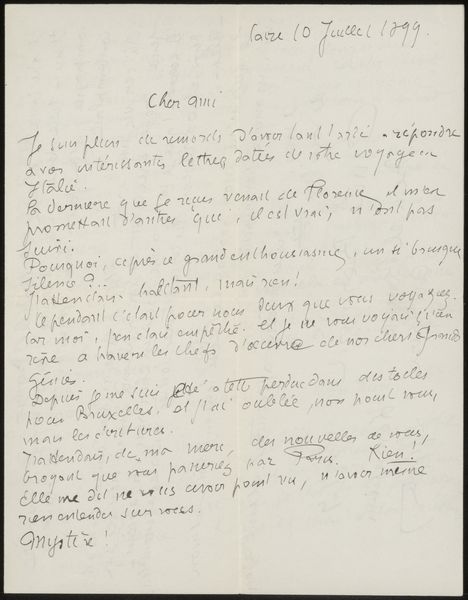 10 Juillet 1899.
Cher ami
Je suis plein de remords d'avoir tant tardé à répondre
à vos intéressantes lettres datées de votre voyage en
Italie.
La dernière que je reçus venait de Florence, et m'en
promettait d'autres qui, il est vrai, n'ont pas
suivi.
Pourquoi, après ce grand enthousiasme, un si brusque
silence?...
J'attendais haletant, mais rien!
Cependant c'était pour nous deux que vous voyagiez.
car moi, j'en étais empêché. et je ne vous voyais
à travers les chefs d'oeuvre de nos chers grands
Génies.
Depuis je me suis à tête perdue dans des toiles
pour Bruxelles, et j'ai oublié, non point vous,
mais les écritures.
J'attendais, de ma mère, des nouvelles de vous,
croyant que vous passeriez par Paris. Rien!
Elle me dit ne vous avoir point vu, n'avoir même
rien entendu sur vous.
Mystère!